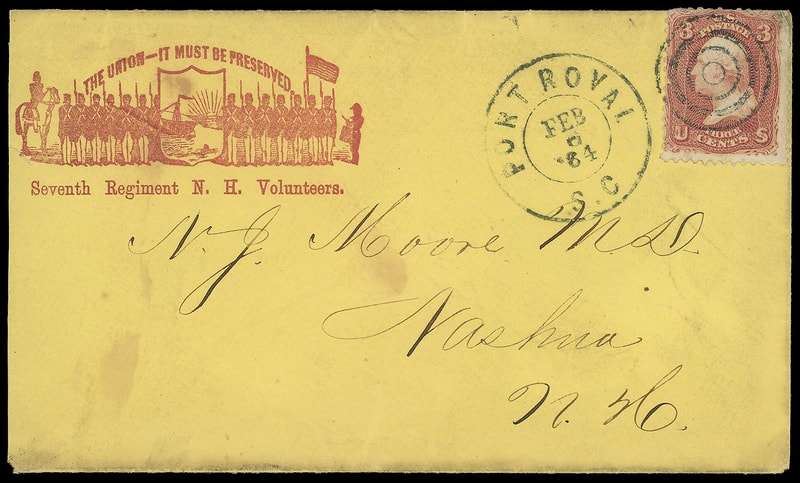 THE UNION—IT MUST BE PRESERVED.
Seventh Regiment N. H. Volunteers.
PORT ROYAL
FEB
64
S.C
3 3
POSTAGE
U THREE S
CENTS
N. J. Moore M.D.
Nashua
N. H.